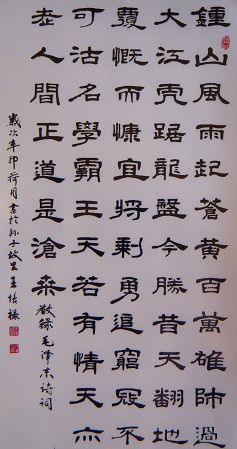 鍾山風雨起蒼黃百萬雄師過
大江虎踞龍盤今勝昔天翻地
覆慨而慷宜將剩勇追窮寇不
可沽名學霸王天若有情天亦
老人間正道是滄桑 敬錄毛澤东诗词
歲次辛卯荷月書於孫子故里王